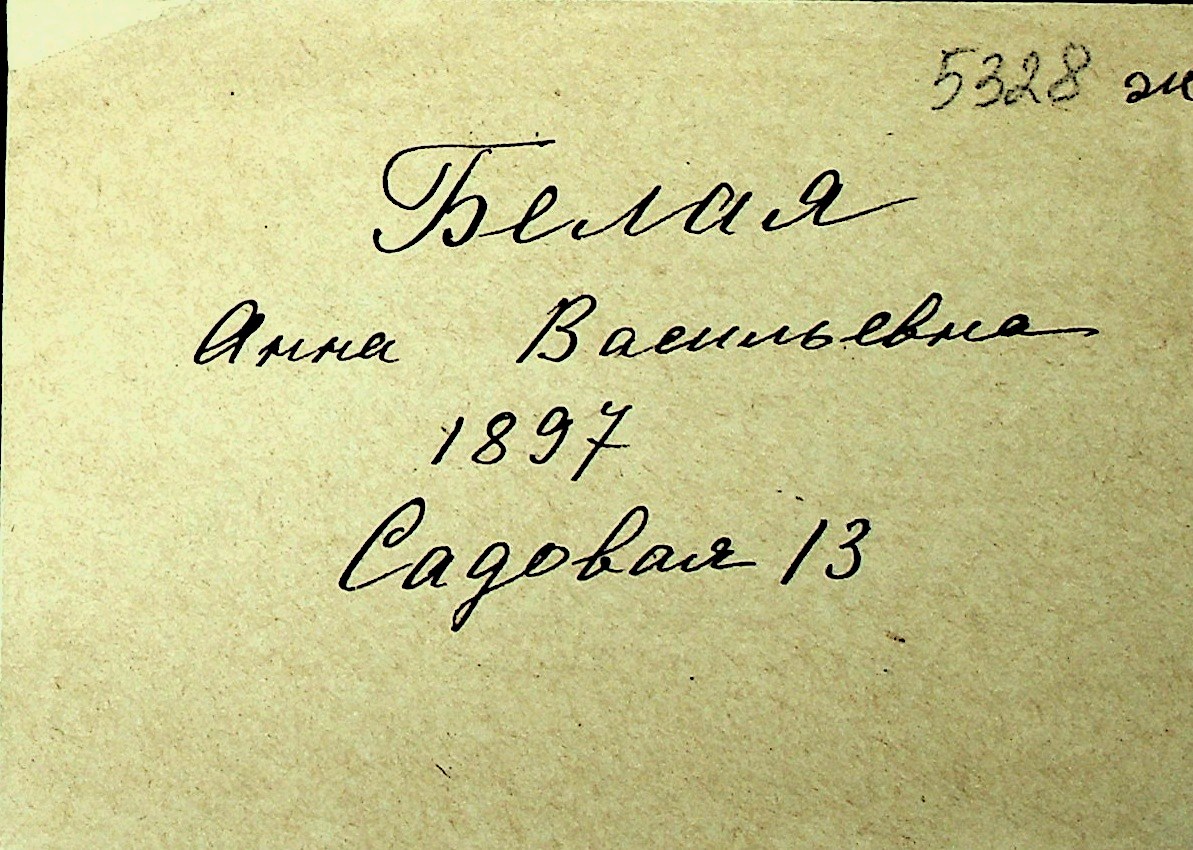 5328 ж
Белая
Анна Васильевна
1897
Садовая 13